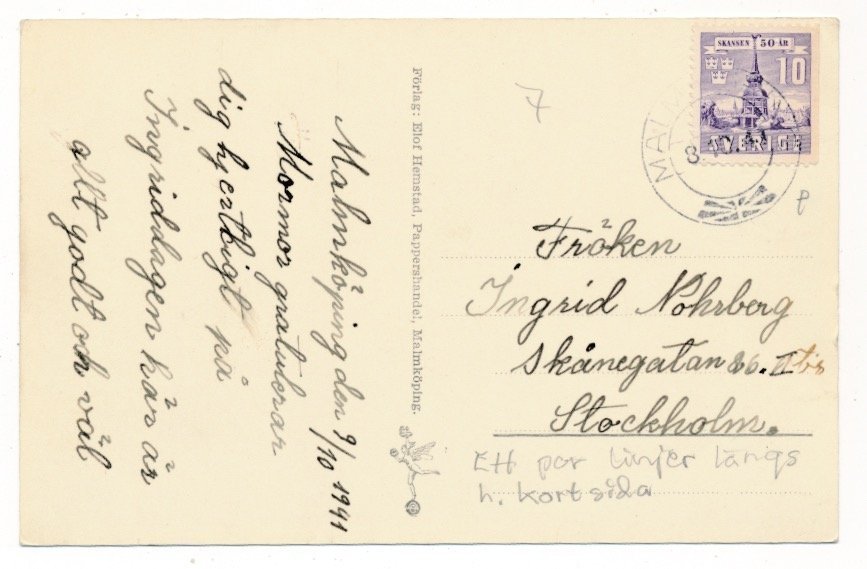 Malmköping den 9/10 1941
Mormor gratulerar
dig hjertligt på
Ingriddagen här är
allt godt och väl
Förlag: Elof Hemstad, Pappershandel, Malmköping.
7
SKANSEN 50 ÅR
10
SVERIGE
MALM
8.10.41
Fröken
Ingrid Nohrberg
Skånegatan 86. II
Stockholm.
Ett par linjer längs
h. kortsida